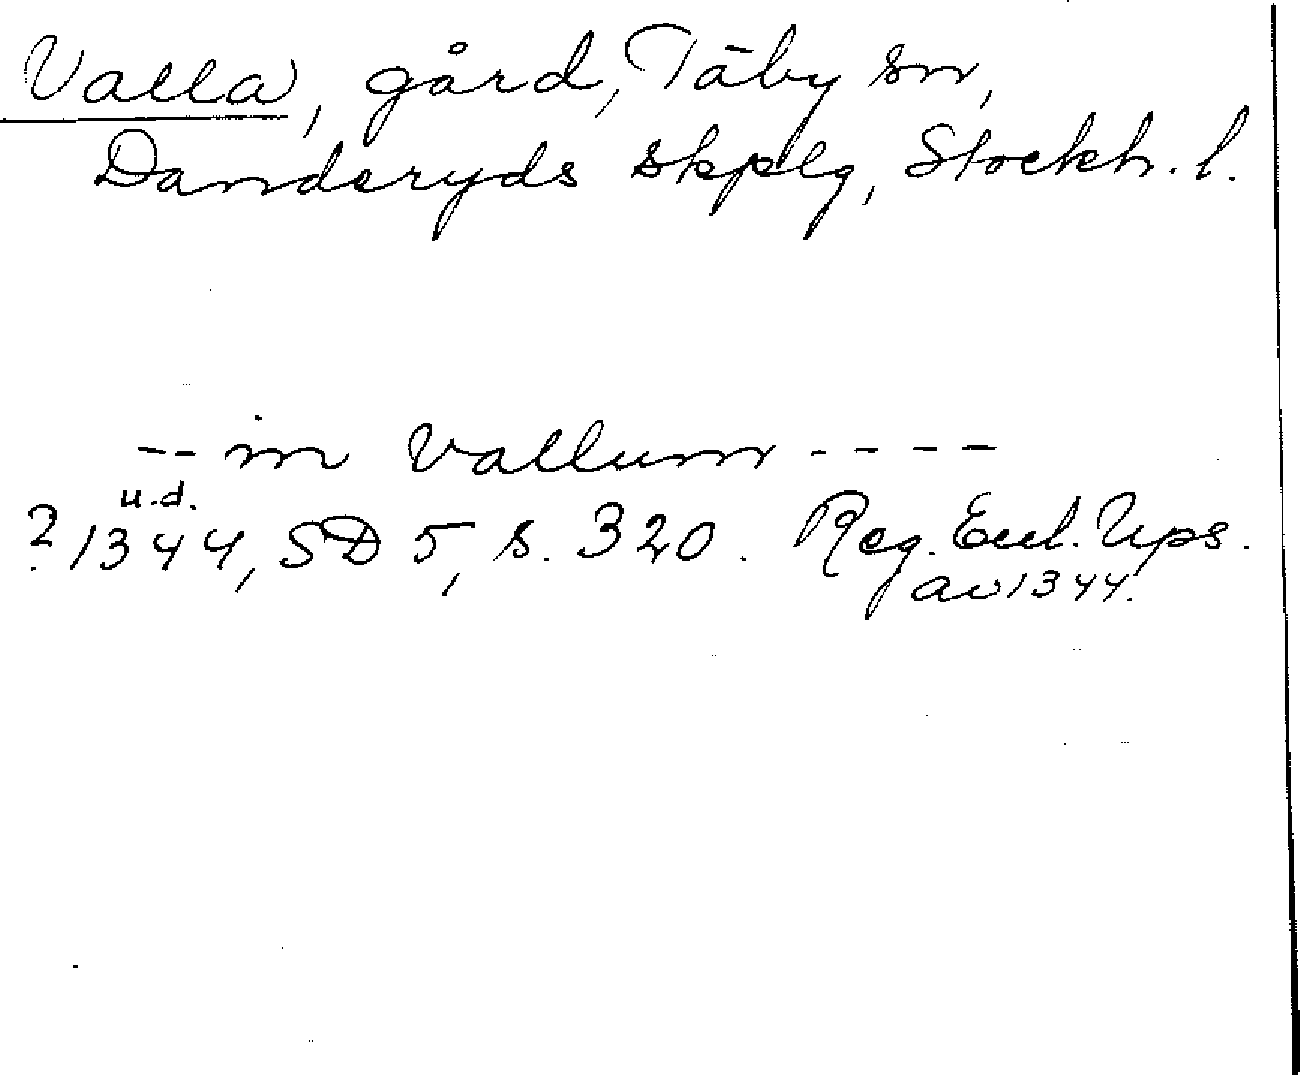 Valla, gård, Täby sn,
Danderyds skplg, Stockh. l.
-- in Vallum ----
u.d.
? 1344, SD 5, s. 320. Reg. Eccl. Ups.
av 1344.